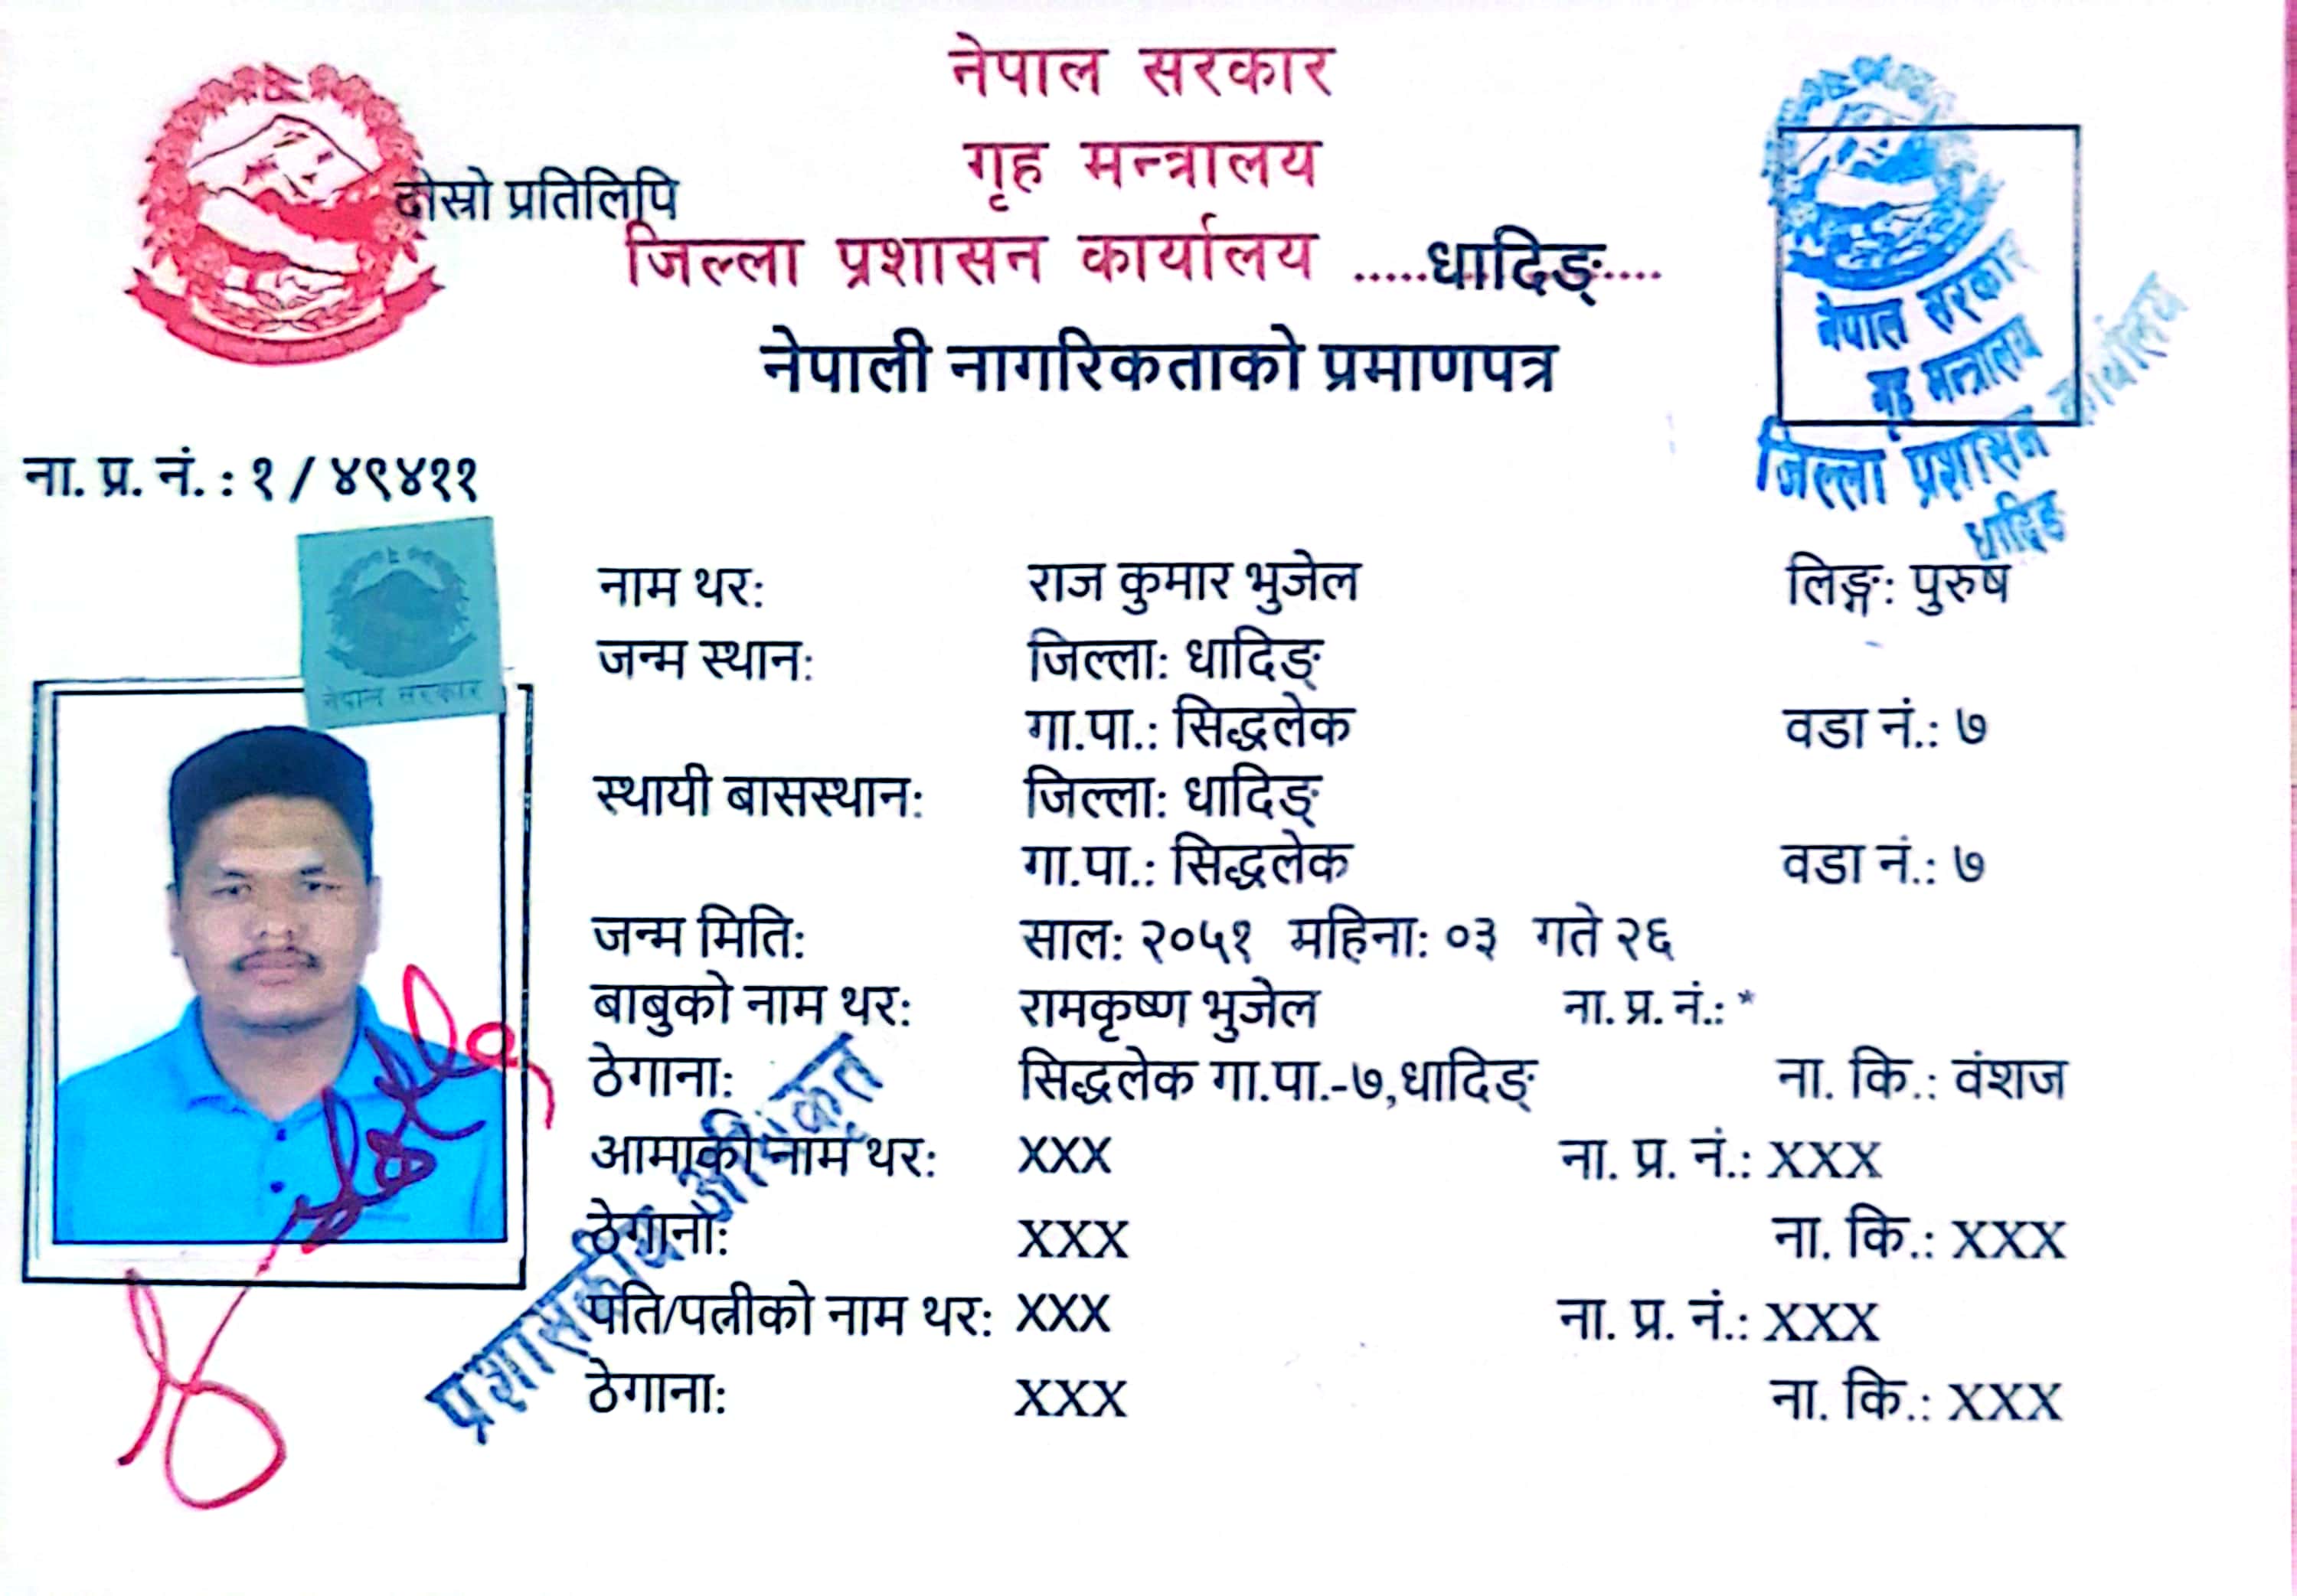 नेपाल सरकार
गृह मन्त्रालय
दोस्रो प्रतिलिपि
जिल्ला प्रशासन कार्यालय .....धादिङ्.....
नेपाली नागरिकताको प्रमाणपत्र
नेपाल सरकार
गृह मन्त्रालय
जिल्ला प्रशासन कार्यालय
धादिङ
ना. प्र. नं. : १ / ४९४११
नेपाल सरकार
नाम थर: राज कुमार भुजेल लिङ्ग: पुरुष
जन्म स्थान: जिल्ला: धादिङ्
गा.पा.: सिद्धलेक वडा नं.: ७
स्थायी बासस्थान: जिल्ला: धादिङ्
गा.पा.: सिद्धलेक वडा नं.: ७
जन्म मिति: साल: २०५१ महिना: ०३ गते २६
बाबुको नाम थर: रामकृष्ण भुजेल ना. प्र. नं.: *
ठेगाना: सिद्धलेक गा.पा.-७,धादिङ् ना. कि.: वंशज
आमाको नाम थर: XXX ना. प्र. नं.: XXX
ठेगाना: XXX ना. कि.: XXX
पति/पत्नीको नाम थर: XXX ना. प्र. नं.: XXX
ठेगाना: XXX ना. कि.: XXX
प्रशासकीय अधिकृत